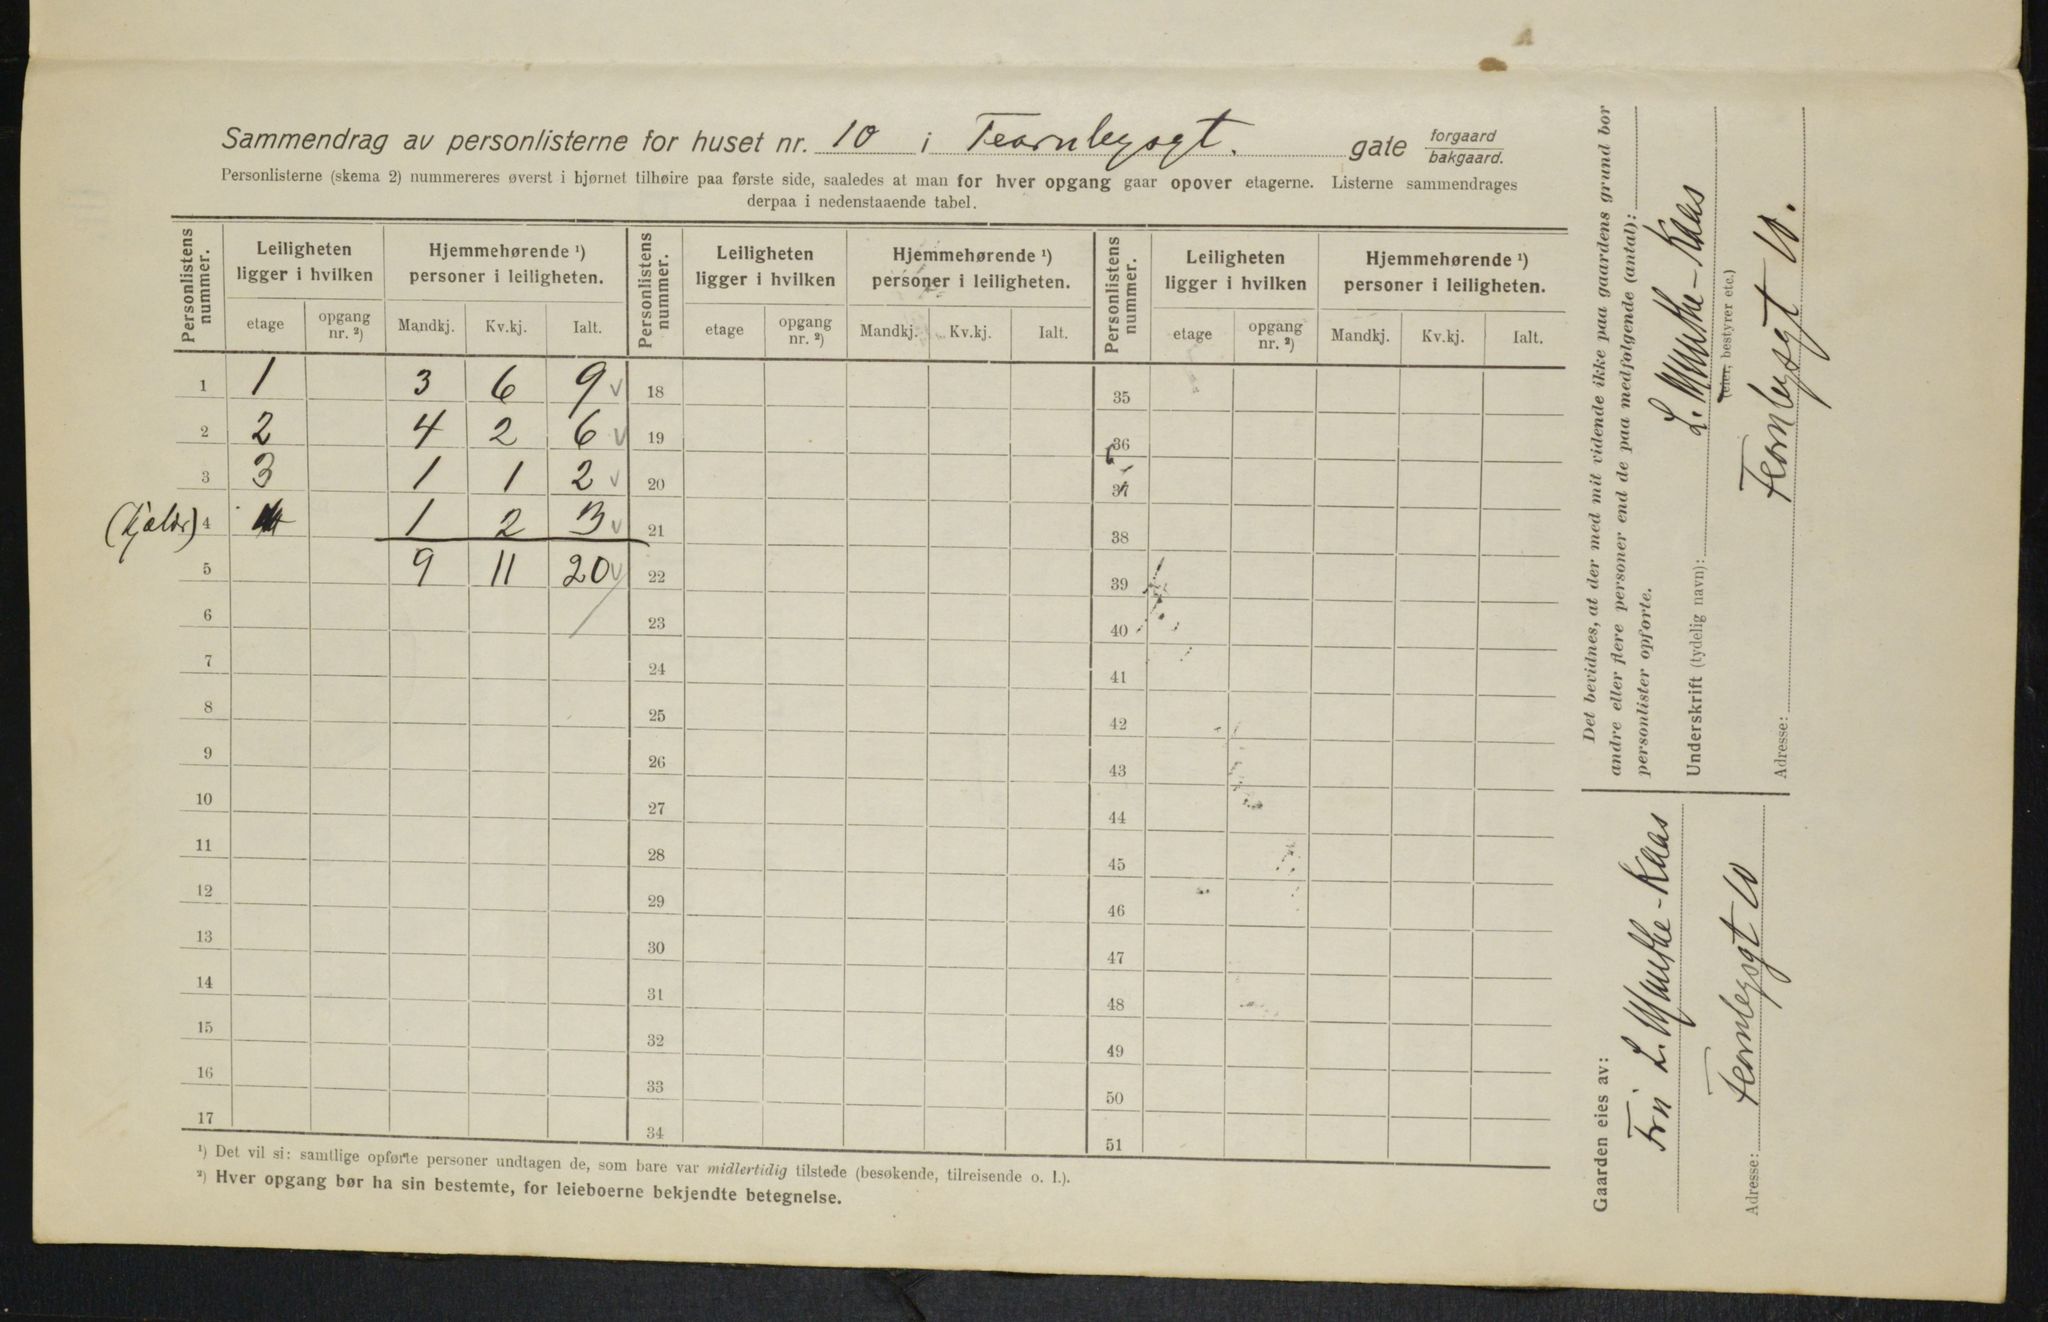 Sammendrag av personlisterne for huset nr. 10 i Tearnleysgt. gate forgaard bakgaard.
Personlisterne (skema 2) nummereres øverst i hjørnet tilhøire paa første side, saaledes at man for hver opgang gaar opover etagerne. Listerne sammendrages
derpaa i nedenstaaende tabel.
Personlistens nummer. Leiligheten ligger i hvilken Hjemmehørende ¹) personer i leiligheten. Personlistens nummer. Leiligheten ligger i hvilken Hjemmehørende ¹) personer i leiligheten. Personlistens nummer. Leiligheten ligger i hvilken Hjemmehørende ¹) personer i leiligheten.
etage opgang nr. ²) Mandkj. Kv.kj. Ialt. etage opgang nr. ²) Mandkj. Kv.kj. Ialt. etage opgang nr. ²) Mandkj. Kv.kj. Ialt.
1 1 3 6 9 18 35
2 2 4 2 6 19 36
3 3 1 1 2 20 37
(kjæld) 4 1 2 3 21 38
5 9 11 20 22 39
6 23 40
7 24 41
8 25 42
9 26 43
10 27 44
11 28 45
12 29 46
13 30 47
14 31 48
15 32 49
16 33 50
17 34 51
¹) Det vil si: samtlige opførte personer undtagen de, som bare var midlertidig tilstede (besøkende, tilreisende o. l.).
²) Hver opgang bør ha sin bestemte, for leieboerne bekjendte betegnelse.
Det bevidnes, at der med mit vidende ikke paa gaardens grund bor
andre eller flere personer end de paa medfølgende (antal):
personlister opførte.
Underskrift (tydelig navn): L. Munthe-Kaas
(eier, bestyrer etc.)
Adresse: Fearnleysgt 10.
Gaarden eies av:
Fru L. Munthe-Kaas
Adresse: Fearnleysgt 10